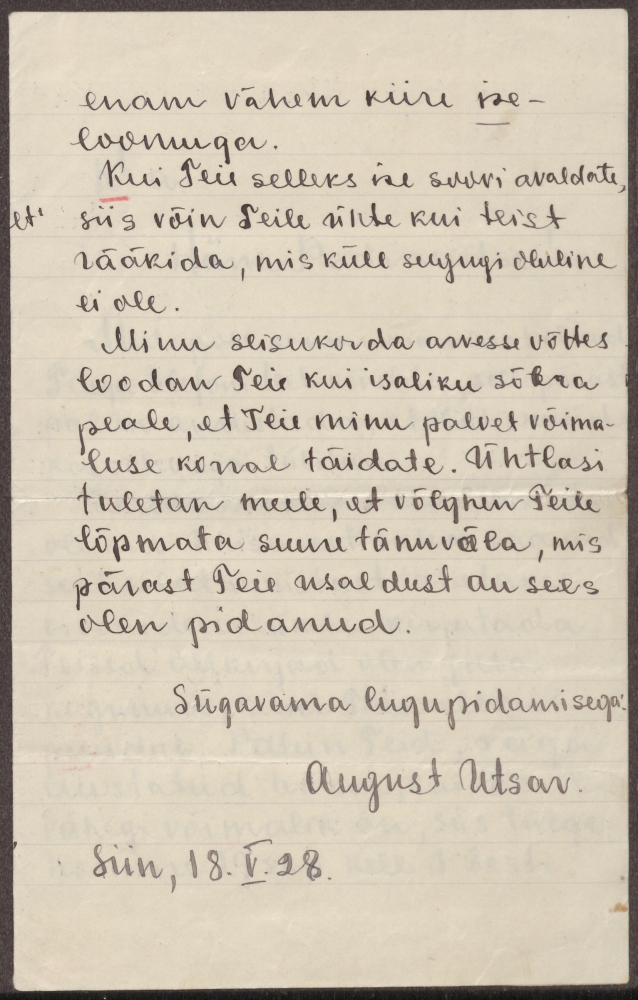 enam vähem kiire ise-
loomuga.
Kui Teie selleks ise soovi avaldate,
siis võin Teile ühte kui teist
rääkida, mis küll sugugi oluline
ei ole.
Minu seisukorda arvesse võttes
loodan Teie kui isaliku sõbra
peale, et Teie minu palvet võima-
luse korral täidate. Ühtlasi
tuletan meele, et võlgnen Teile
lõpmata suure tänuvõla, mis
pärast Teie usaldust au sees
olen pidanud.
Sügavama lugupidamisega:
August Utsar.
Siin, 18.V.28.